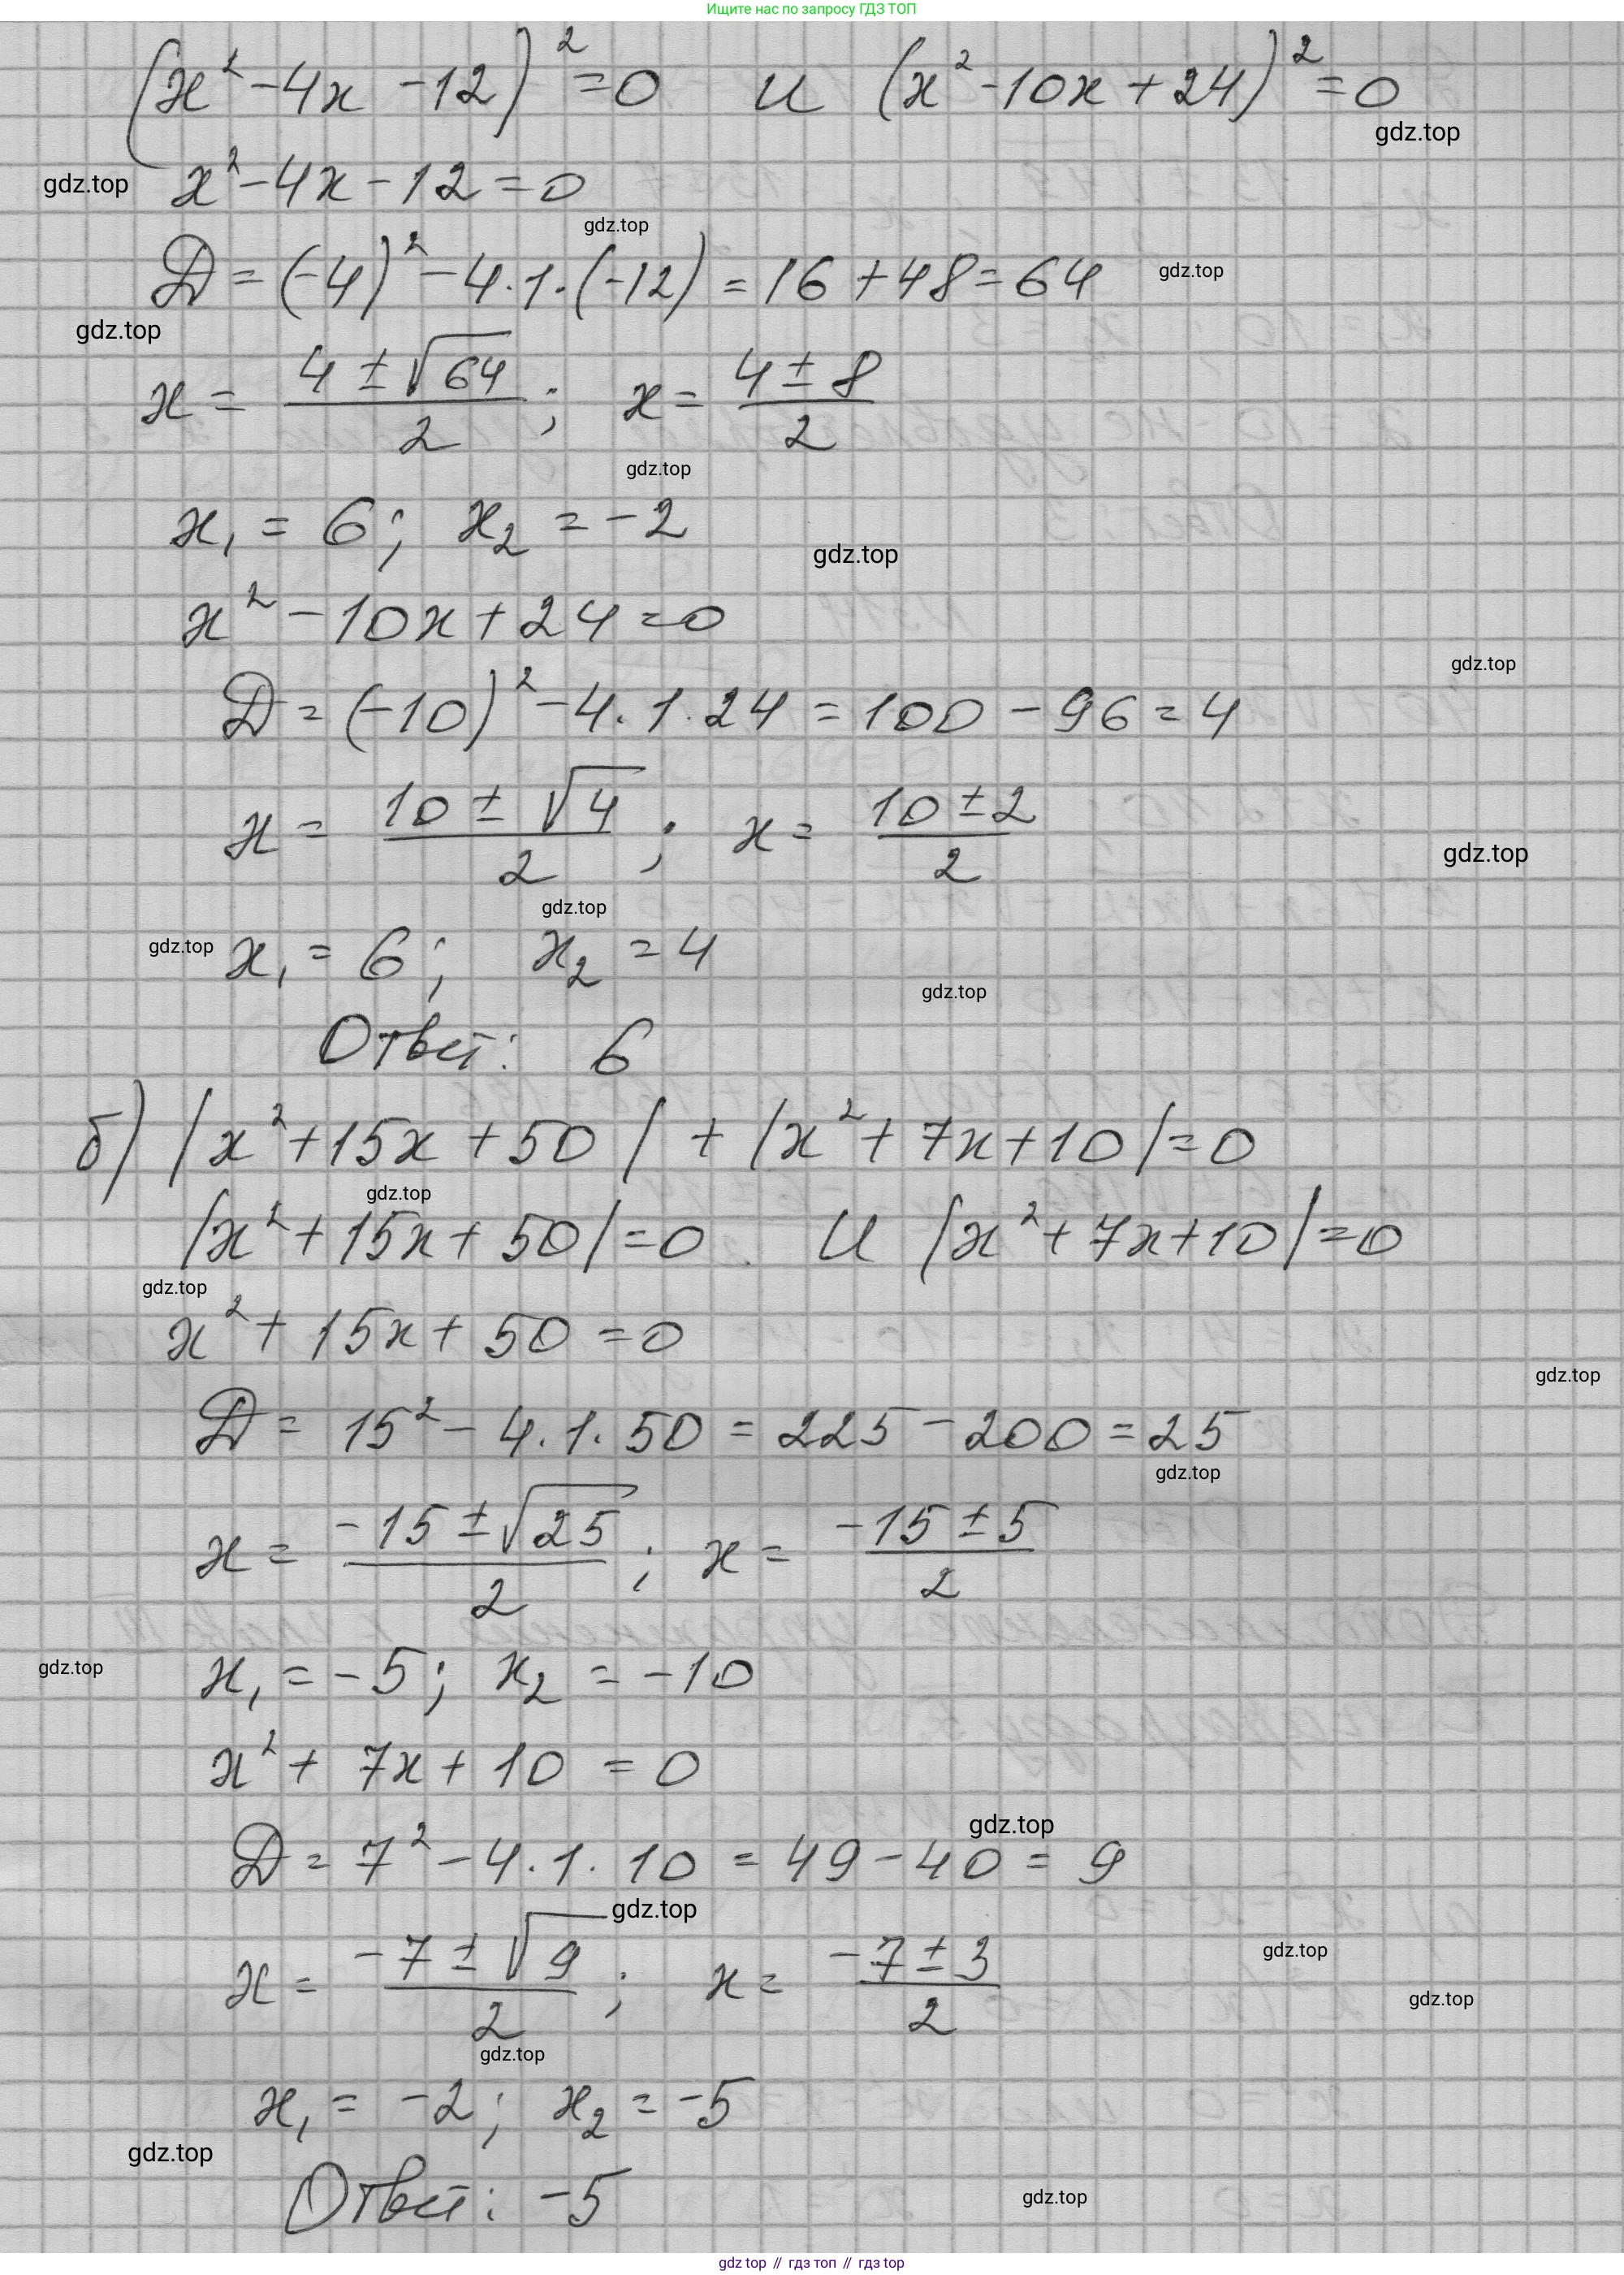 Ищите нас по запросу ГДЗ ТОП
(x² - 4x - 12)² = 0 и (x² - 10x + 24)² = 0
gdz.top
gdz.top x² - 4x - 12 = 0
gdz.top
D = (-4)² - 4·1·(-12) = 16 + 48 = 64 gdz.top
gdz.top
x = (4 ± √64)/2 ; x = (4 ± 8)/2
gdz.top
x₁ = 6; x₂ = -2
gdz.top
x² - 10x + 24 = 0
gdz.top
D = (-10)² - 4·1·24 = 100 - 96 = 4
x = (10 ± √4)/2 ; x = (10 ± 2)/2
gdz.top
gdz.top
gdz.top x₁ = 6; x₂ = 4
gdz.top
Ответ: 6
б) |x² + 15x + 50| + |x² + 7x + 10| = 0
gdz.top
|x² + 15x + 50| = 0 и |x² + 7x + 10| = 0
gdz.top
x² + 15x + 50 = 0
gdz.top
D = 15² - 4·1·50 = 225 - 200 = 25
gdz.top
x = (-15 ± √25)/2 ; x = (-15 ± 5)/2
gdz.top x₁ = -5; x₂ = -10
x² + 7x + 10 = 0
gdz.top
D = 7² - 4·1·10 = 49 - 40 = 9
gdz.top
gdz.top
x = (-7 ± √9)/2 ; x = (-7 ± 3)/2
gdz.top
gdz.top
x₁ = -2; x₂ = -5
gdz.top
Ответ: -5
gdz.top
gdz top // гдз топ // gdz top